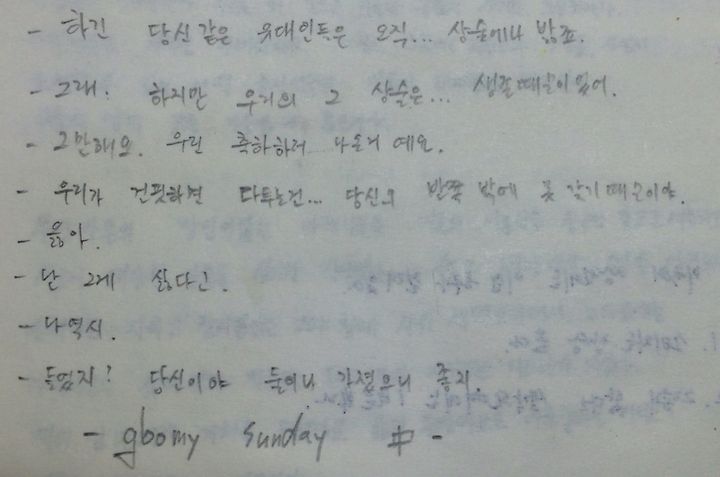 - 하긴 당신같은 유대인들은 오직... 상술에나 밝죠.
- 그래! 하지만 우리의 그 상술은... 생존때문이었어.
- 그만해요. 우린 축하하러 나온거예요.
- 우리가 걸핏하면 다투는건... 당신의 반쪽 밖에 못 갖기때문이야.
- 옳아.
- 난 그게 싫다고.
- 나 역시.
- 들었지? 당신이야 둘이나 가졌으니 좋지
- gloomy sunday 中 -